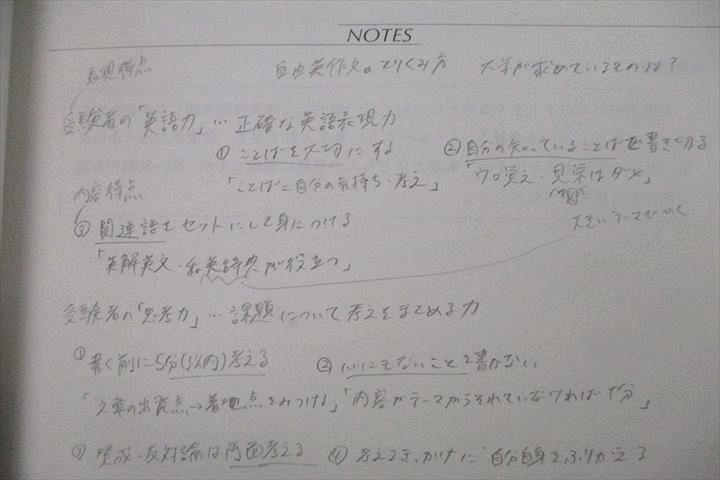 NOTES
自由英作文のとりくみ方 大学が求めているものは?
表現得点
受験者の「英語力」… 正確な英語表現力
① ことばを大切にする ② 自分の知っていることばで書き切る
「ことば=自分の気持ち・考え」 「ウロ覚え・見栄はダメ」
内容得点
大きいテーマでひく
③ 関連語をセットにして身につける
「英解英文・和英辞典が役立つ」
受験者の「思考力」… 課題について考えをまとめる力
① 書く前に5分(以内)考える ② 心にもないことを書かない
「文章の出発点→着地点をみつける」「内容がテーマからそれていなければ十分」
③ 賛成・反対論は両面考える ④ 考えるきっかけに自分自身をふりかえる